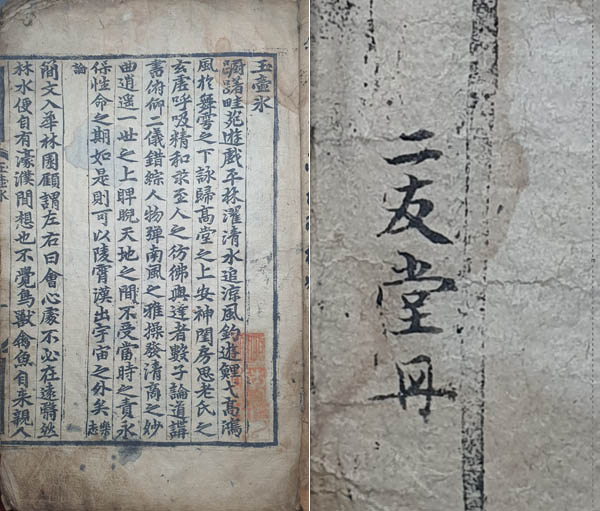 玉壺冰
畦苑遊戲平林濯清水追凉風釣遊鯉弋高鴻
風於舞雩之下詠歸高堂之上安神閨房思老氏之
玄虛呼吸精和求至人之彷彿與達者數子論道講
書俯仰二儀錯綜人物彈南風之雅操發清商之妙
曲逍遥一世之上睥睨天地之間不受當時之責永
保性命之期如是則可以陵霄漢出宇宙之外矣樂志
論
簡文入華林園顧謂左右曰會心處不必在遠翳然
林水便自有濠濮間想也不覺鳥獸禽魚自来親人
玉壺冰
二友堂冊